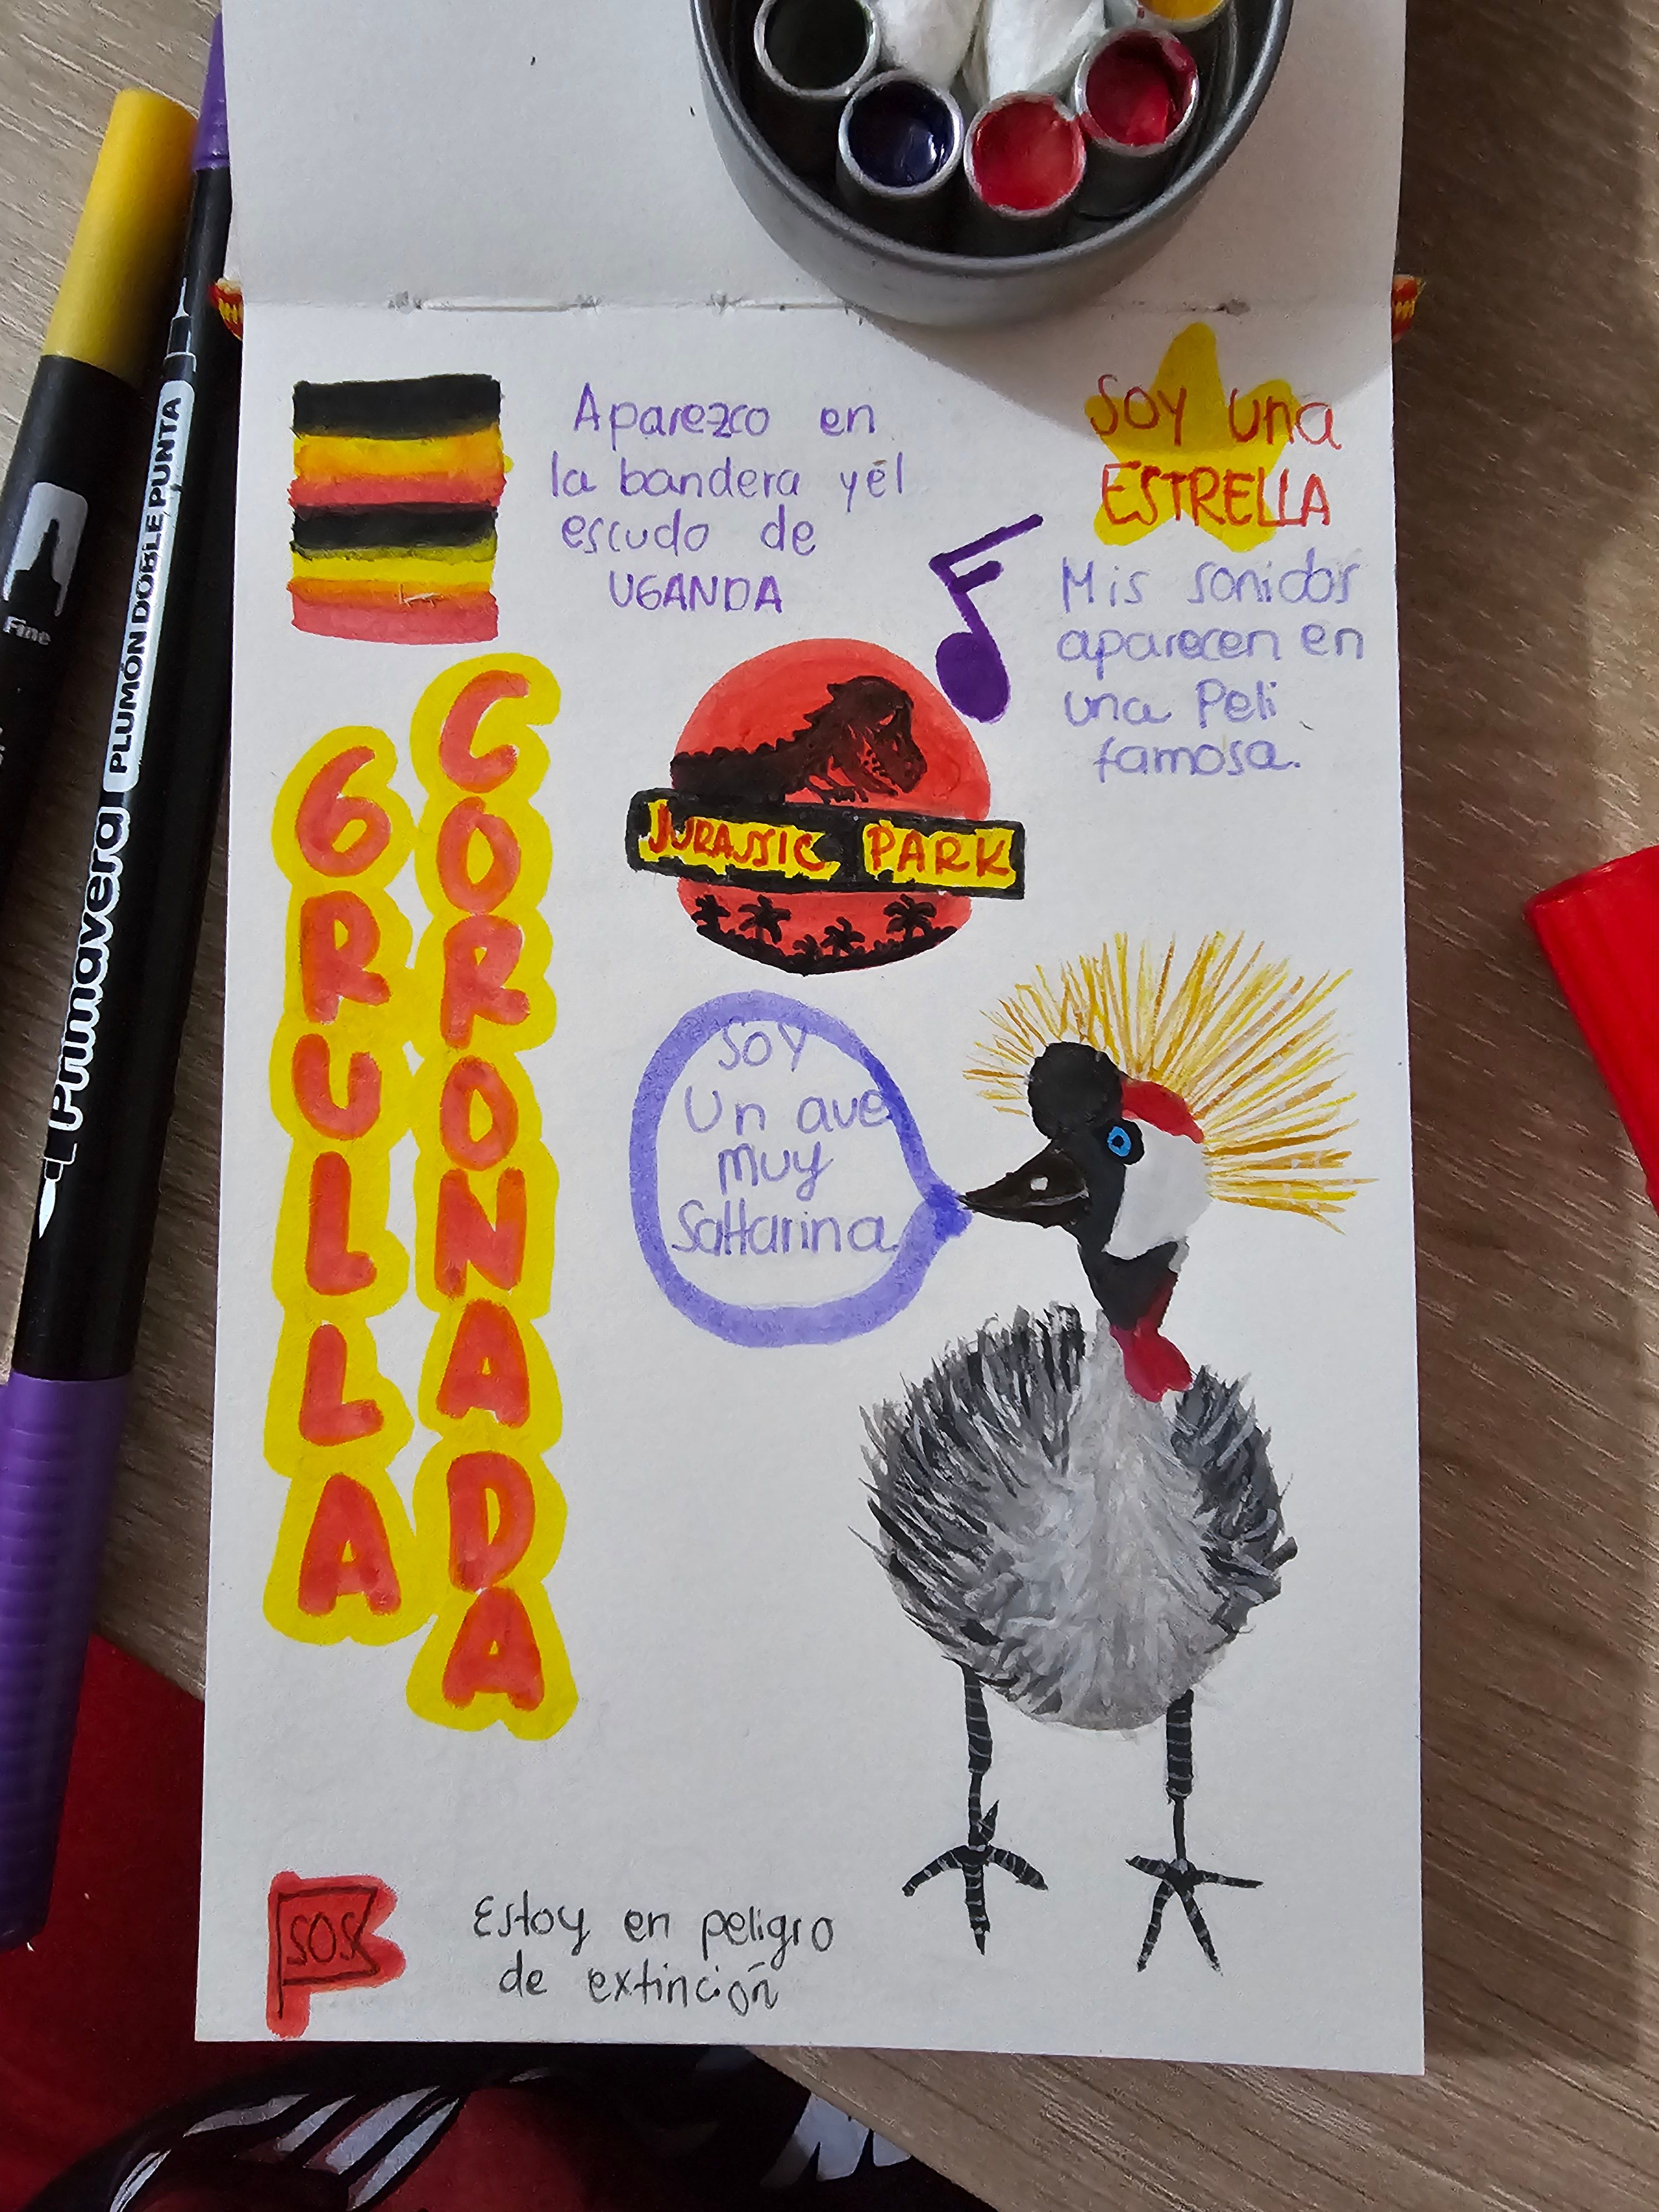 Aparezco en
la bandera y él
escudo de
UGANDA
Soy una
ESTRELLA
Mis sonidos
aparecen en
una Peli
famosa.
JURASSIC PARK
GRULLA
CORONADA
Soy
Un ave
muy
Saltarina
SOS
Estoy en peligro
de extinción
Fine
Primavera PLUMÓN DOBLE PUNTA